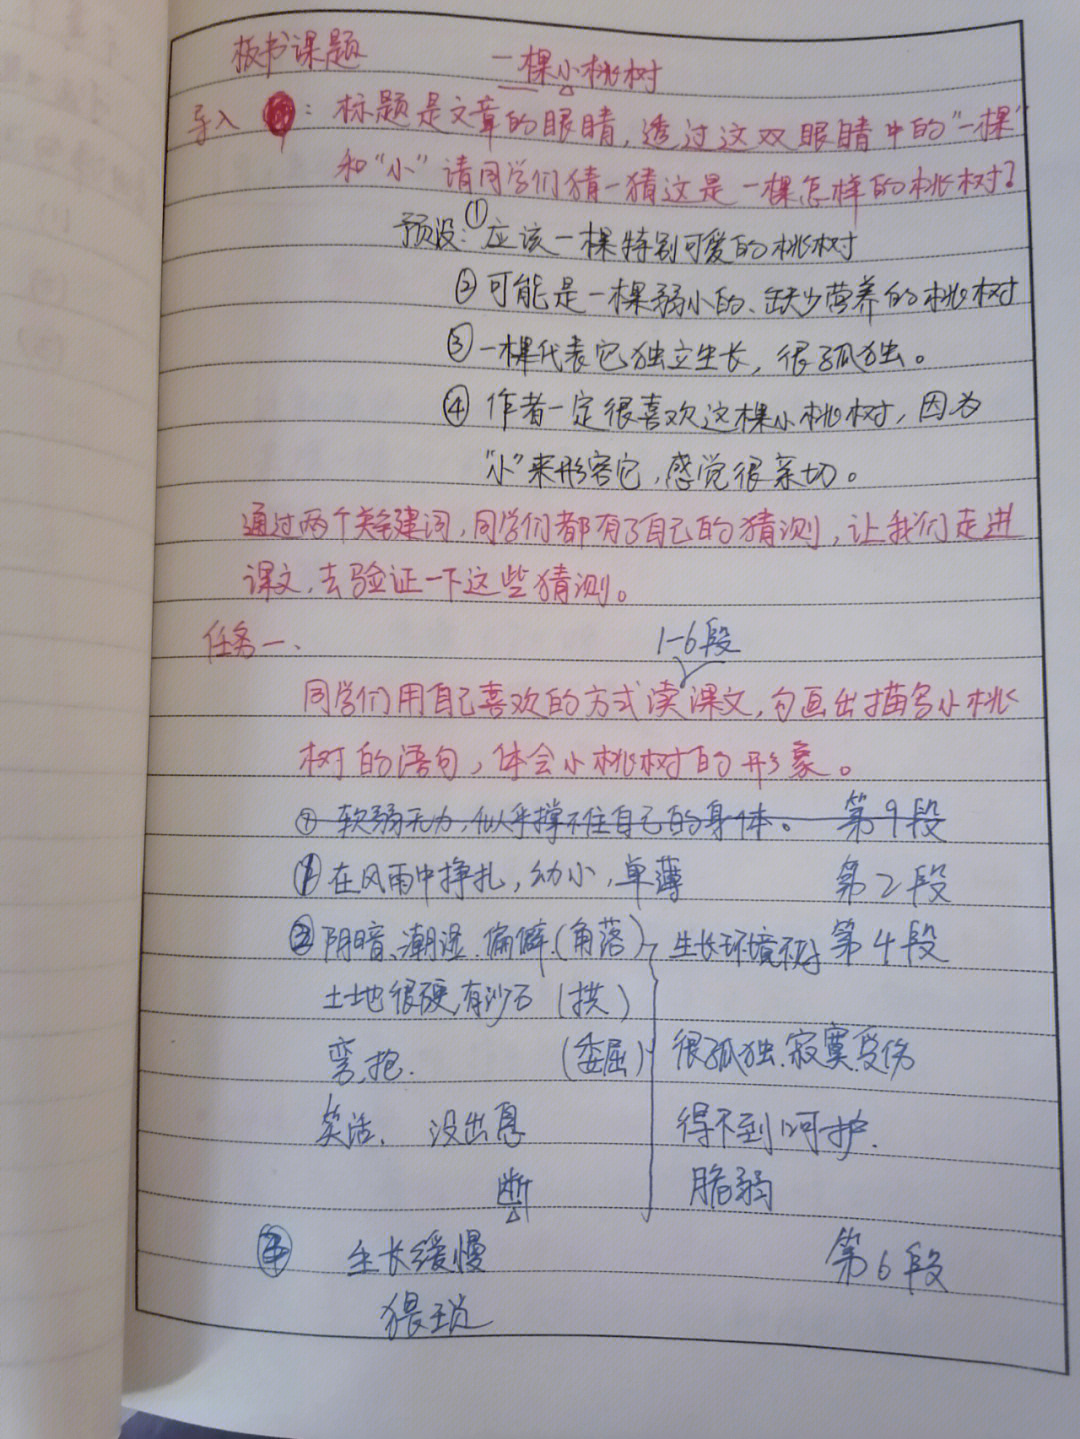 板书课题 一棵小桃树
导入：标题是文章的眼睛，透过这双眼睛中的“一棵”
和“小”请同学们猜一猜这是一棵怎样的桃树？
预设：①应该一棵特别可爱的桃树
②可能是一棵弱小的、缺少营养的桃树
③一棵代表它独立生长，很孤独。
④作者一定很喜欢这棵小桃树，因为
“小”来形容它，感觉很亲切。
通过两个关键词，同学们都有了自己的猜测，让我们走进
课文，去验证一下这些猜测。
任务一、 1-6段
同学们用自己喜欢的方式读课文，勾画出描写小桃
树的语句，体会小桃树的形象。
软弱无力，似乎撑不住自己的身体。 第9段
①在风雨中挣扎，幼小，单薄 第2段
②阴暗、潮湿、偏僻（角落） 生长环境不好 第4段
土地很硬，有沙石 （拱）
弯，抱. （委屈） 很孤独.寂寞.受伤
笑话， 没出息 得不到呵护.
断 脆弱
生长缓慢 第6段
猥琐